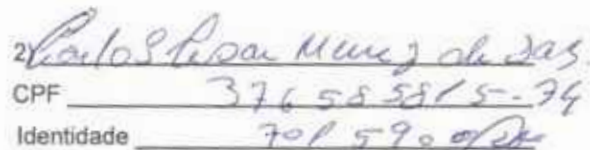 2) Carlos Cesar Muniz de
CPF 376585815-74
Identidade 701590